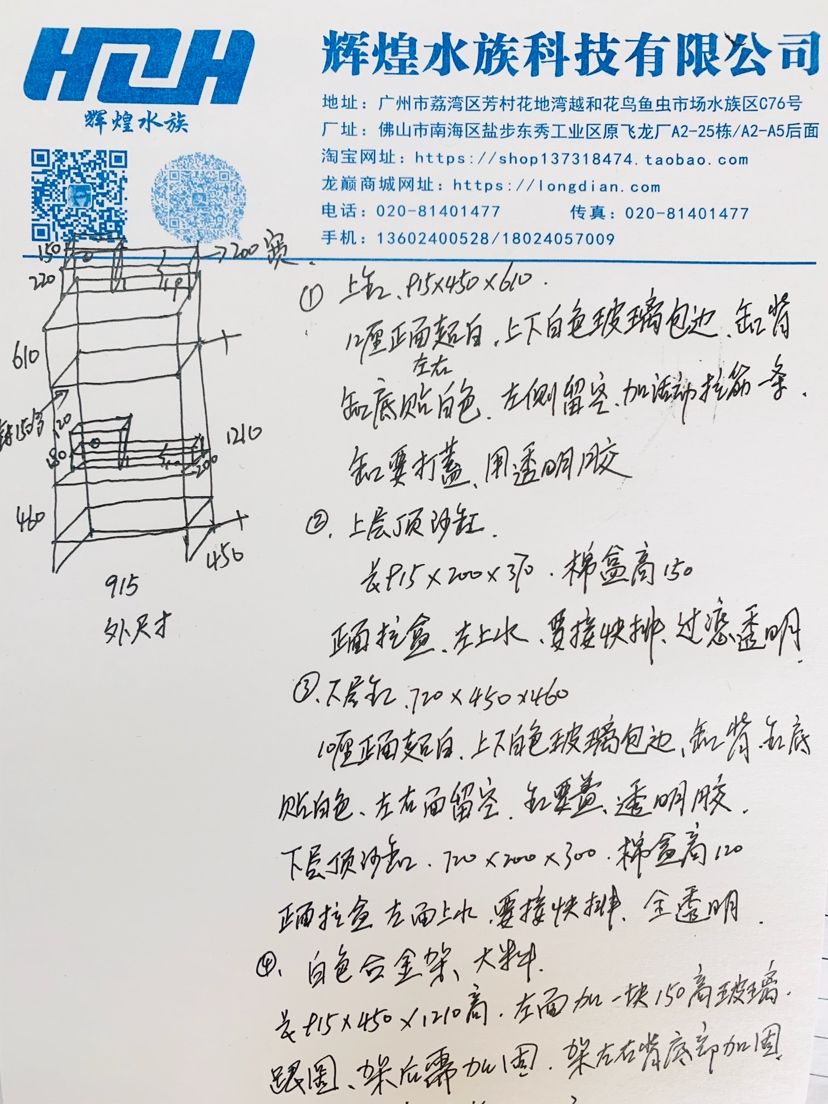 HZH
辉煌水族
辉煌水族科技有限公司
地址：广州市荔湾区芳村花地湾越和花鸟鱼虫市场水族区C76号
厂址：佛山市南海区盐步东秀工业区原飞龙厂A2-25栋/A2-A5后面
淘宝网址：https://shop137318474.taobao.com
龙巅商城网址：https://longdian.com
电话：020-81401477 传真：020-81401477
手机：13602400528/18024057009
150
220
→200宽.
610
150高
120
180
200
1210
460
450
915
外尺寸
① 上缸、915×450×610.
12厘正面超白，上下白色玻璃包边、缸背
左右
缸底贴白色、左侧留空、加活动拉筋一条.
缸要打盖、用透明胶
②、上层顶沙缸.
长915×200×370.棉盒高150
正面拉盒、左上水、要接快排、过滤透明
③、下层缸、720×450×460
10厘正面超白、上下白色玻璃包边、缸背缸底
贴白色、左右面留空、缸要盖、透明胶.
下层顶沙缸.720×200×300.棉盒高120
正面拉盒左面上水、要接快排、全透明.
④、白色合金架、大料.
长915×450×1210高.左面加一块150高玻璃.
跟图、架后需加固.架左右背底部加固